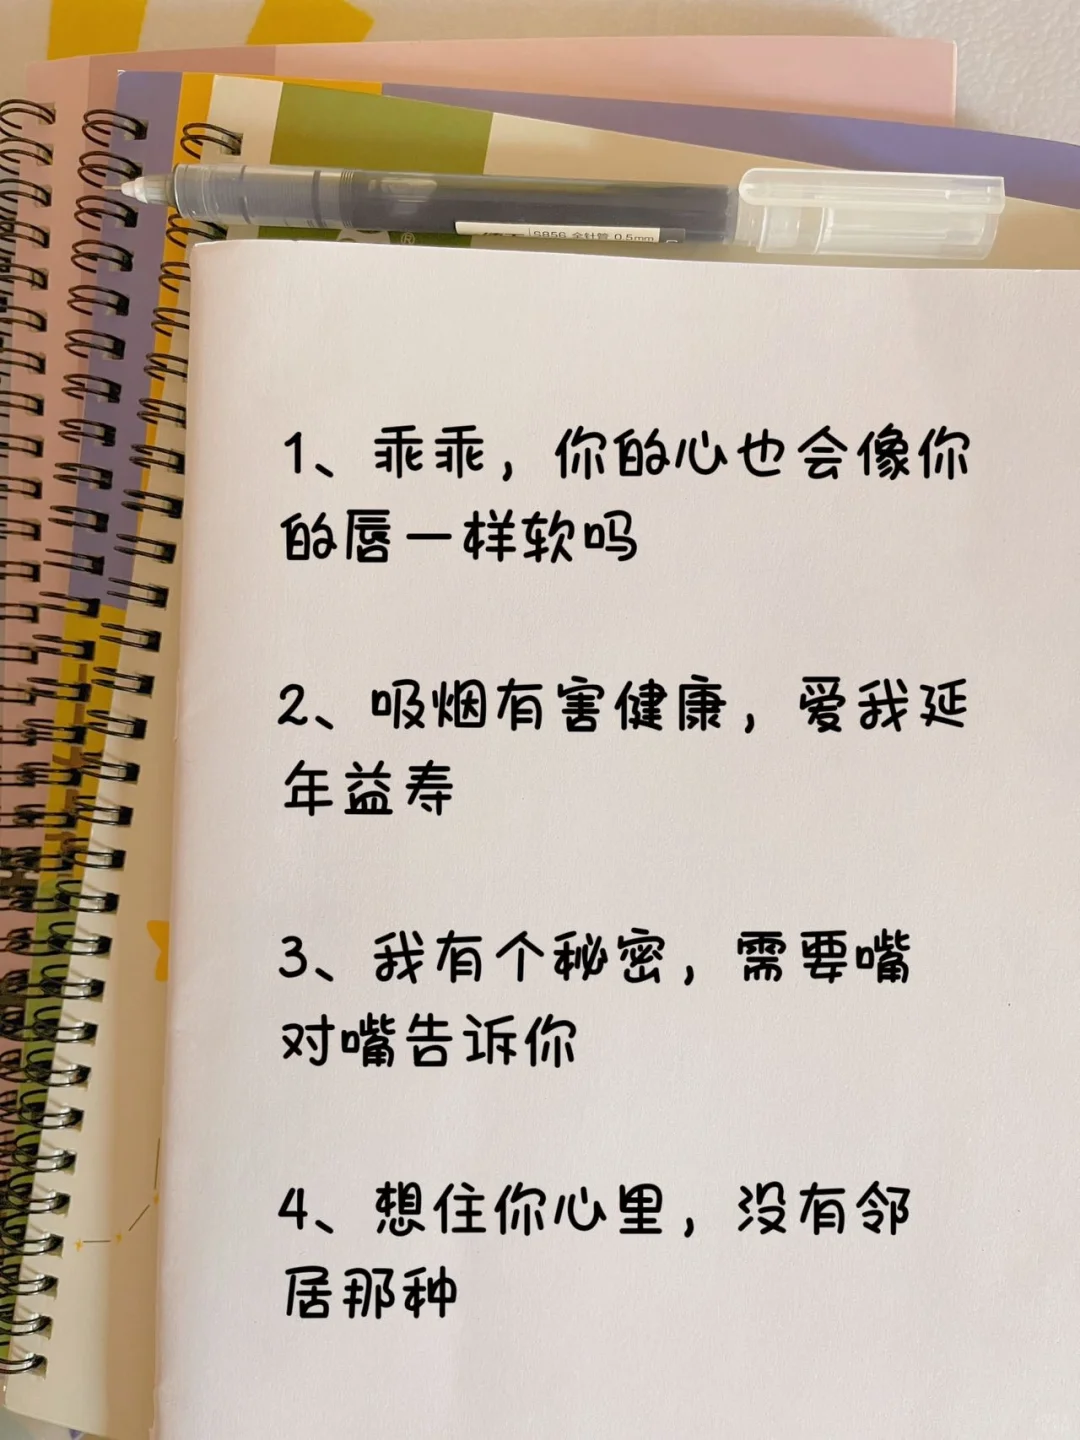 ®
S856 全针管 0.5mm
1、乖乖，你的心也会像你
的唇一样软吗
2、吸烟有害健康，爱我延
年益寿
3、我有个秘密，需要嘴
对嘴告诉你
4、想住你心里，没有邻
居那种